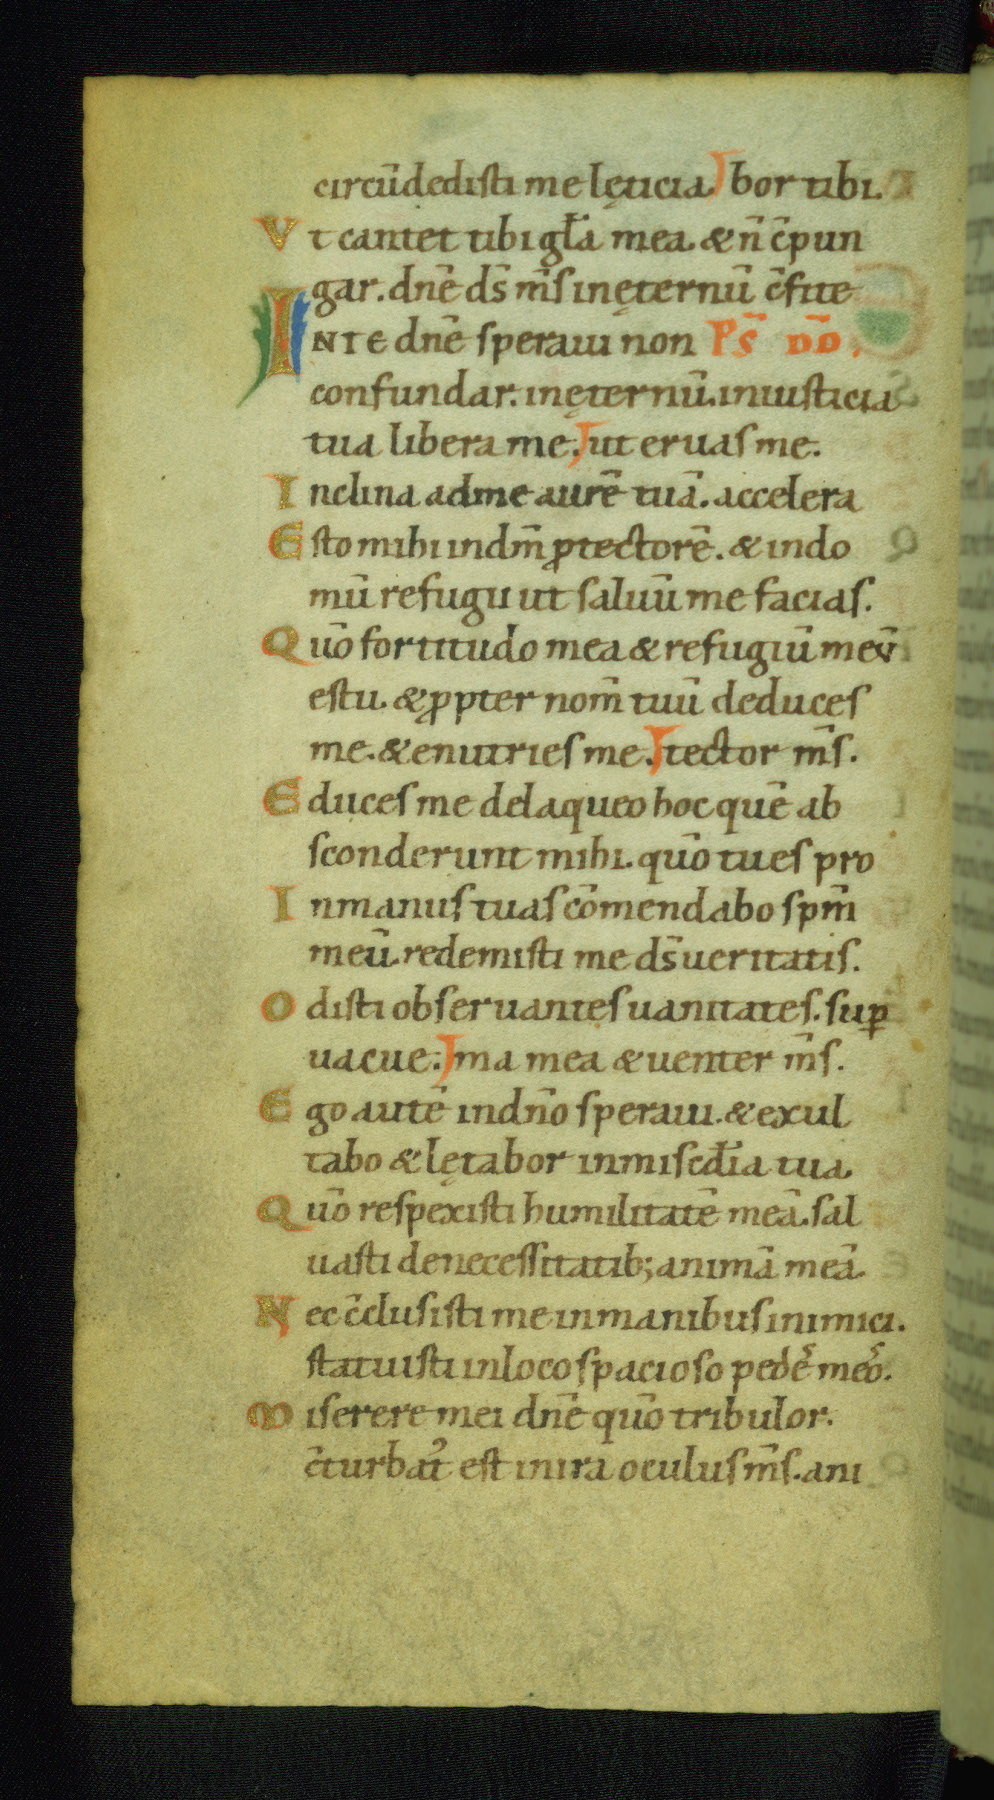 circūdedisti me lęticia bor tibi.
Vt cantet tibi gl̄a mea. & n̄ c̄pun
gar. dn̄e ds̄ m̄s inęternū c̄fite
INTE dn̄e speraui non Ps̄ DD̄.
confundar. inęternū. iniusticia
tua libera me. ut eruas me.
Inclina adme aurē tuā. accelera
Esto mihi indm̄ ꝓtectorē. & indo
mū refugii ut saluū me facias.
Qūo fortitudo mea & refugiū meū
estu. & ꝓpter nom̄ tuū deduces
me. & enutries me. tector m̄s.
Educes me delaqueo hoc quē ab
sconderunt mihi. qūo tu es pro
Inmanus tuas cōmendabo spm̄
meū. redemisti me ds̄ ueritatis.
Odisti obseruantes uanitates. suꝑ
uacue. ma mea & uenter m̄s.
Ego autē indn̄o speraui. & exul
tabo & lętabor inmiscd̄ia tua.
Qūo respexisti humilitatē meā. sal
uasti denecessitatib; animā meā.
Nec c̄clusisti me inmanibus inimici.
statuisti inloco spacioso pedes meos.
Miserere mei dn̄e qūo tribulor.
c̄turbat᾽ est inira oculus m̄s. ani